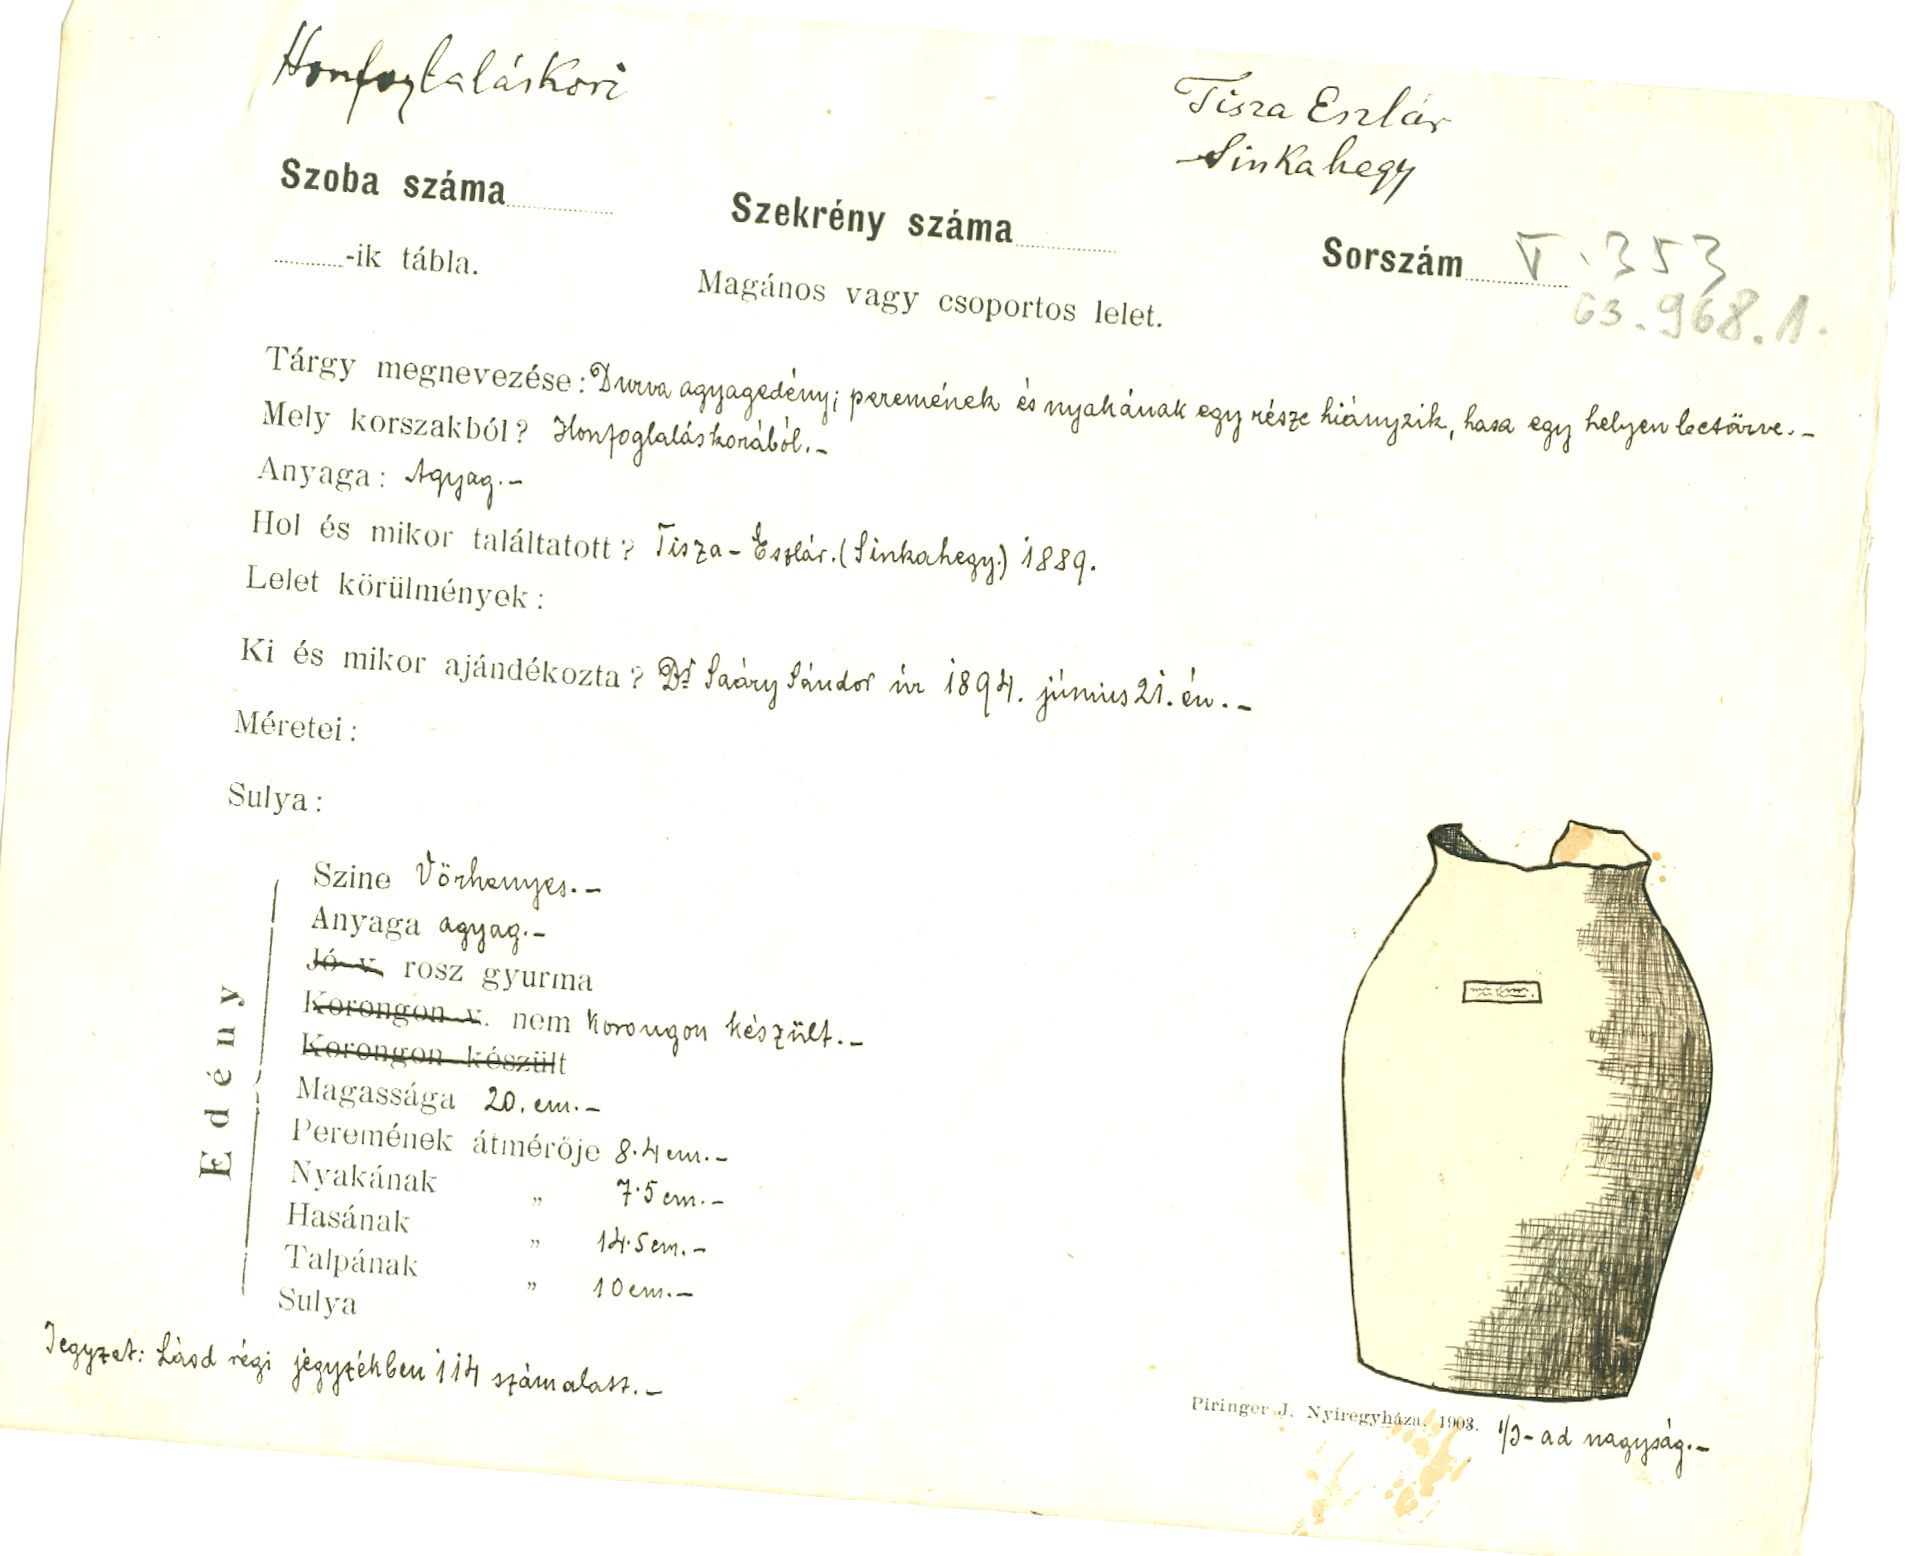 Honfoglaláskori
Tisza Eszlár
Sinkahegy
Szoba száma
Szekrény száma
Sorszám V. 353
63.968.1.
-ik tábla.
Magános vagy csoportos lelet.
Tárgy megnevezése: Durva agyagedény; peremének és nyakának egy része hiányzik, hasa egy helyen betörve.-
Mely korszakból? Honfoglaláskorából.-
Anyaga: Agyag.-
Hol és mikor találtatott? Tisza-Eszlár.(Sinkahegy.) 1889.
Lelet körülmények:
Ki és mikor ajándékozta? Dr. Saáry Sándor úr 1894. június 21.én.-
Méretei:
Sulya:
Edény
Szine Vörhenyes.-
Anyaga agyag.-
Jó v. rosz gyurma
Korongon v. nem korongon készült.-
Korongon készült
Magassága 20. cm.-
Peremének átmérője 8.4 cm.-
Nyakának „ 7.5 cm.-
Hasának „ 14.5 cm.-
Talpának „ 10 cm.-
Sulya
Jegyzet: Lásd régi jegyzékben 114 szám alatt.-
Piringer J. Nyiregyháza. 1903.
1/3-ad nagyság.-